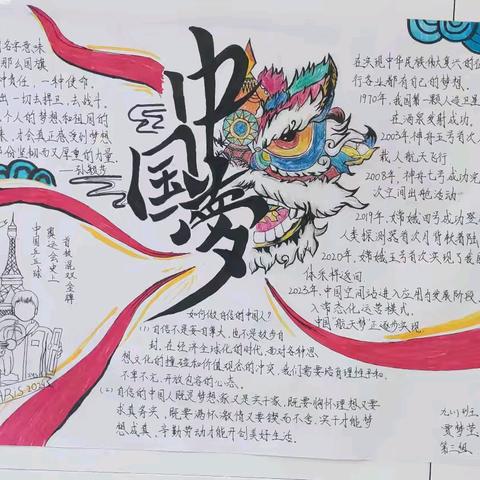 名字意味
那么国旗
种责任,一种使命,
出一切去捍卫、去战斗。
个人的梦想和祖国的
来,才会真正感受到梦想
份坚韧而又厚重的力量
——孙颖莎
中国梦
在实现中华民族伟大复兴的
行各业都有自己的梦想。
1970年,我国第一颗人造卫星
在酒泉发射成功。
2003年神舟五号首次
载人航天飞行
2008年神舟七号成功完
次空间出舱活动
2019年,嫦娥四号成功登
人类探测器首次月背软着陆
2020年,嫦娥五号首次实现了我国
体采样返回
2023年,中国空间站进入应用与发展阶段,
入常态化运营模式,
中国航天梦正逐步实现.
首枚混双金牌
奥运会史上
中国乒乓球
PARIS 2024
如何做自信的中国人?
(1)自信不是妄自尊大,也不是故步自
封,在经济全球化的时代,面对各种思
想文化的碰撞和价值观念的冲突,我们需要培育理性平和、
不卑不亢、开放包容的心态。
(2)自信的中国人既是梦想家又是实干家,既要胸怀理想又要
求真务实,既要满怀激情又要锲而不舍。实干才能梦
想成真,辛勤劳动才能开创美好生活.
九(1)班
贾梦莹
第三组